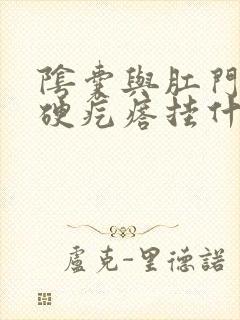 陰囊與肛門
硬疙瘩挂什
盧克-里德諾